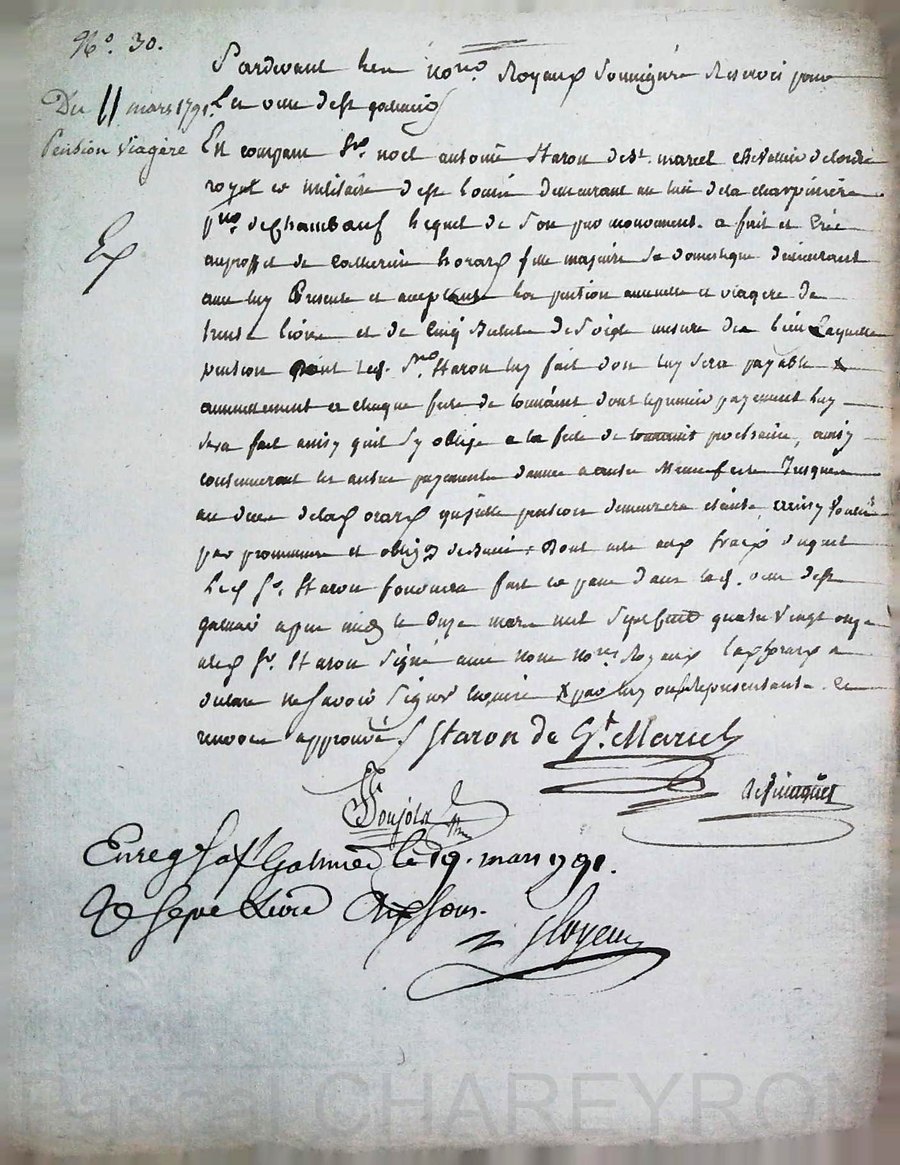 N.o 30.
Du 11 mars 1791.
Pension Viagère
Ex
Pardevant les no.res Royaux Soussignés Reservés pour
La ville de st galmier
En comparu Sr. noel antoine Staron de St. marcel chevalier de lordre
royal et militaire de st louis demeurant au lieu de la charpinière
p.sse de Chambœuf Lequel de Son pur mouvement a fait et Créé
auproffit de Catherine horard fille majeure Sa domestique demeurant
avec luy Presente et acceptante La pention annuelle et viagère de
trente livres et de Cinq de Seigle mesure de Laquelle
pention dont led. Sr. Staron luy fait don luy sera payable
annuellement et chaque feste de toussaint dont le premier payement luy
Sera fait ainsy quil Sy oblige a la feste de toussaint prochaine, ainsy
continueront les autres payements dannée a autre a meme feste Jusques
au deces de lad. orard quicelle pention demeurera eteinte, ainsy Voulu
par promesse et oblig. de Biens, Dont acte aux fraix duquel
Led. Sr. Staron fournira fait et passé dans lad. ville de st
galmier apres midy le Onze mars mil Sept cent quatre Vingt onze
a led. Sr. Staron Signé avec nous no.res Royaux lad. horard a
declaré ne Savoir Signer enquise
renvoy approuvé
Staron de St. Marcel
Boujola
Enreg. à St. Galmier le 19. mars 1791.
Livres Sous.